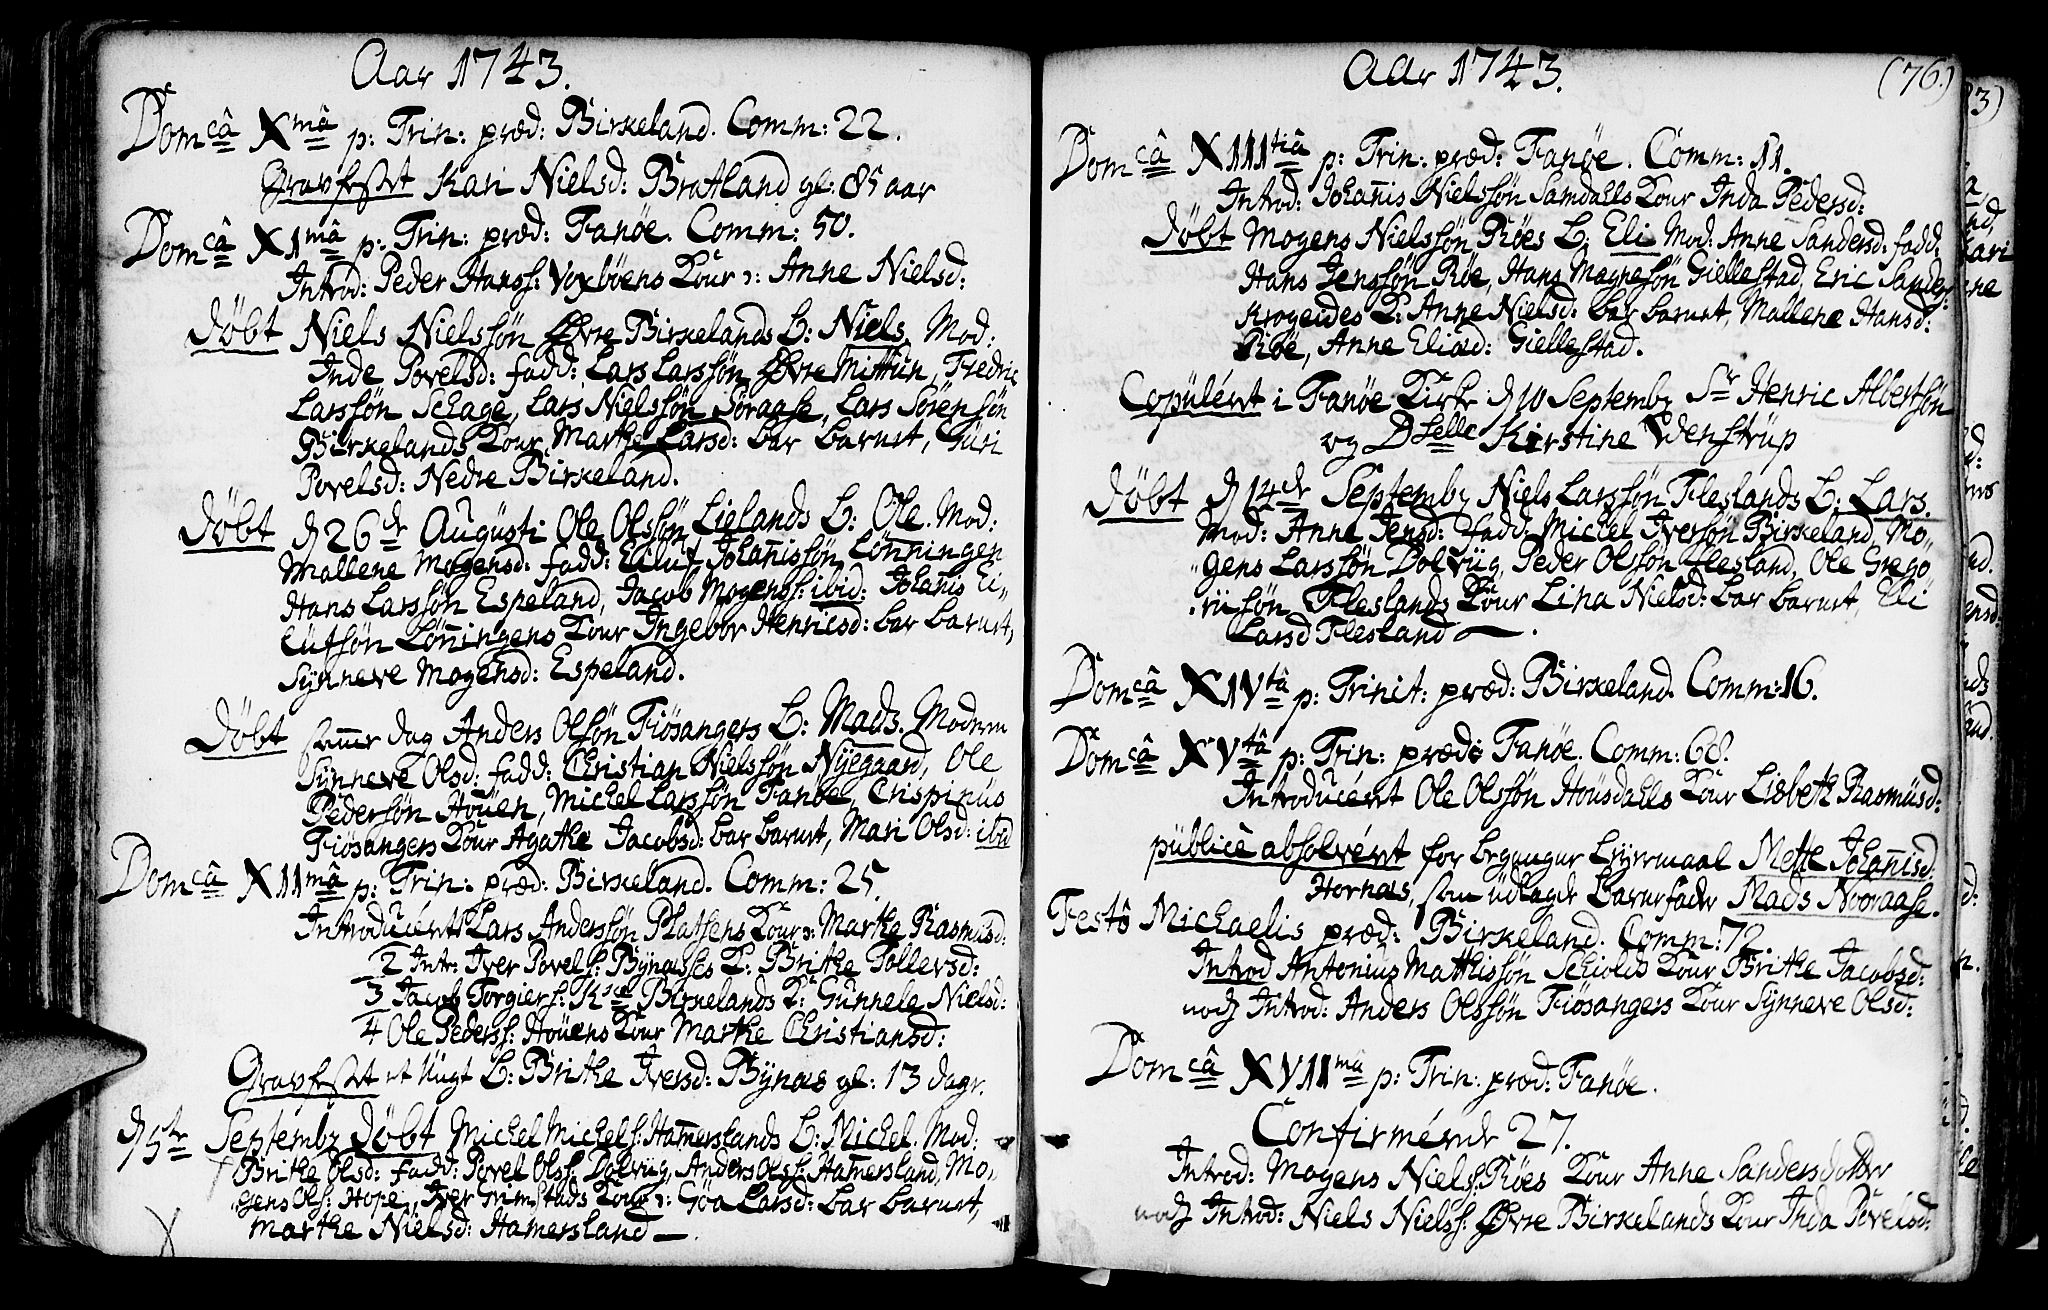 Aar 1743.
Domcâ Xmâ p: Trin: præd: Birkeland. Comm: 22.
Gravfestet Kari Nielsd: Bratland gl: 85 aar
Domcâ XImâ p: Trin: præd: Fanöe. Comm: 50.
Introd: Peder Hanss: Voxböens Kone: Anne Nielsd:
Döbt Niels Nielssön Øvre Birkelands B: Niels, Mod:
Inde Povelsd: fadd: Lars Larssön Øvre Mittün, Fredric
Larssön Schage, Lars Nielssön Soraase, Lars Sörensön
Birkelands Kone Marthe Larsd: bar barnet, Güri
Povelsd: Nedre Birkeland.
Döbt d 26de Augusti Ole Olssön Lielands B: Ole. Mod:
Mallene Mogensd: fadd: Eiluf Johannissön Lönningen
Hans Larssön Espeland, Jacob Mogenss: ibid: Johanis Ei-
lufsön Lönningens Kone Ingebor Henricsd: bar barnet,
Synneve Mogensd: Espeland.
Döbt samme dag Anders Olssön Fiösangers B: Mads. Moderen
Synneve Olsd: fadd: Christian Nielssön Nyegaard, Ole
Pedersön Houen, Michel Larssön Fanöe, Crispinüs
Fiösangers Kone Agathe Jacobsd: bar barnet, Mari Olsd: ibid
Domcâ XIImâ p: Trin: præd: Birkeland. Comm: 25.
Introducéret Lars Anderssön Platsens Kone: Marthe Rasmüsd:
2 Intr: Iver Povels: Bynæsses K: Brithe Tollevsd:
3 Jacob Torgiers: Birkelands K: Gunnele Nielsd:
4 Ole Peders: Houens Kone Marthe Christiansd:
Gravfestet et Ungt B: Brithe Iversd: Bynæs gl: 13 dage.
d 5te Septembr Döbt Michel Michels: Hamerslands B: Michel. Mod:
Brithe Olsd: fadd: Povel Olss: Dolvüg, Anders Olss: Hamersland, Mo-
gens Olss: Hope, Iver Grimstads Kone: Göa Larsd: bar barnet,
Marthe Nielsd: Hamersland.
Aar 1743.
(76.)
Domcâ XIIItiâ p: Trin: præd: Fanöe. Comm: 11.
Introd: Johannis Nielssön Samdahls Kone Inda Pedersd:
Döbt Mogens Nielssön Röes B: Eli Mod: Anne Sandersd: fadd:
Hans Jenssön Röe, Hans Magnesön Giellestad, Eric Sander
Krogeides K: Anne Nielsd: bar barnet, Mallene Hansd:
Röe, Anne Eliæd: Giellestad.
Copüléret i Fanöe Kirke d 10 Septembr Sr Henric Albertsön
og Dselle Kirstine Udenstrüp
Döbt d 14de Septembr Niels Larssön Fleslands B: Lars.
Mod: Anne Jensd: fadd: Michel Iversön Birkeland, Mo-
gens Larssön Dolvüg, Peder Olssön Flesland, Ole Grego
riisön Fleslands Kone Lina Nielsd: bar barnet, Eli
Larsd Flesland.
Domcâ XIVtâ p: Trinit: præd: Birkeland. Comm: 16.
Domcâ XVtâ p: Trin: præd: Fanöe. Comm: 68.
Introducéret Ole Olssön Housdahls Kone Lisbeth Rasmüsd:
püblicè absolvéret for begangne Leyermaal Mette Johannisd:
Hornæs, som udlagde Barnefader Mads Noraase.
Festô Michaelis præd: Birkeland. Comm: 72.
Introd Antonius Matthissön Schiolds Kone Brithe Jacobsd:
nock Introd: Anders Olssön Fiösangers Kone Synneve Olsd:
Domcâ XVIImâ p: Trin: præd: Fanöe.
Confirmérede 27.
Introd: Mogens Niels: Röes Kone Anne Sandersdotter
nock Introd: Niels Niels: Øvre Birkelands Kone Inda Povelsd: